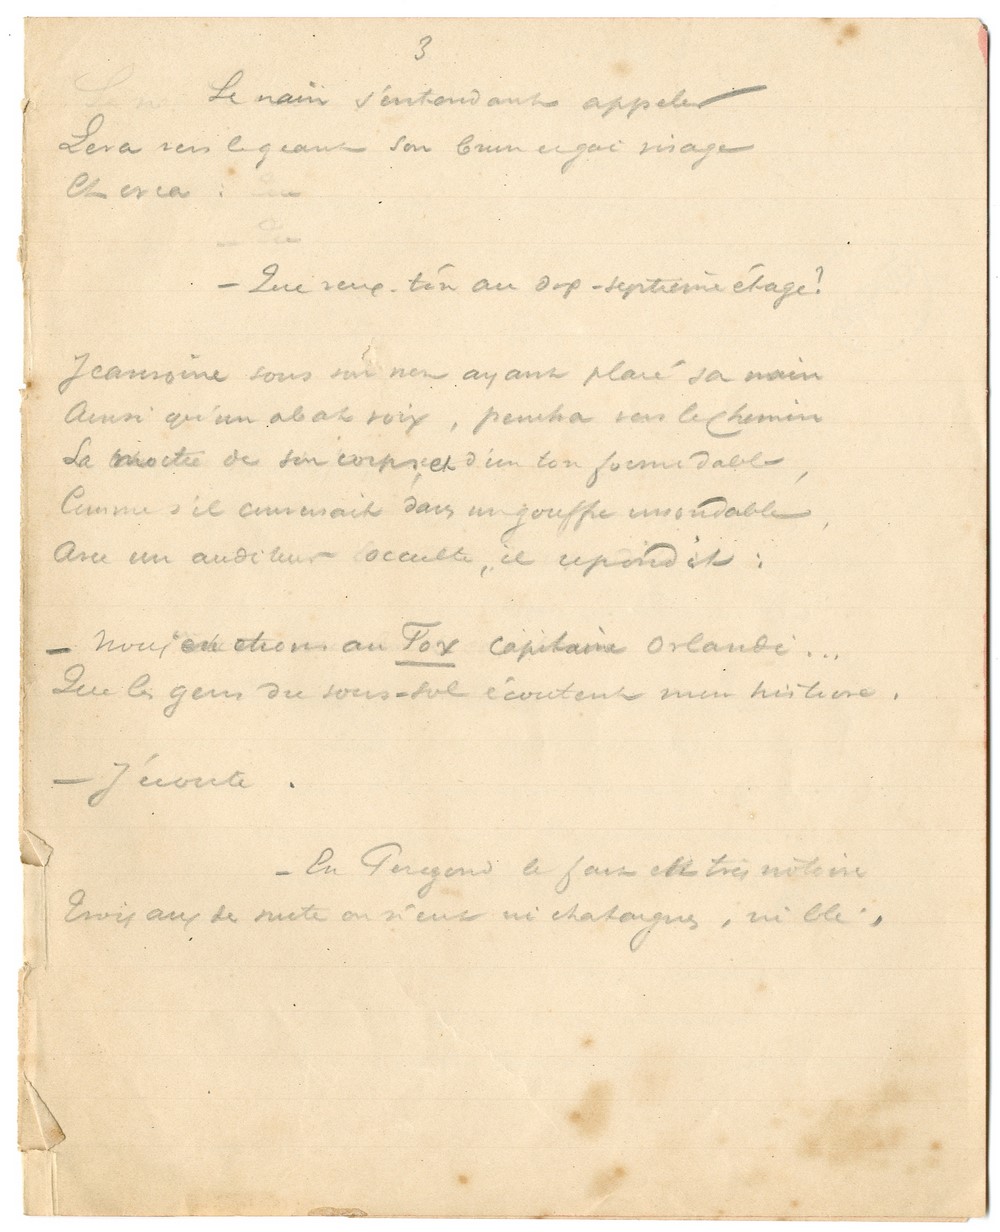 3
Le nain s'entendant appeler
Leva vers le geant son brun et gai visage
Et cria :
— Que veux-tu au dix-septième étage ?
sous son nez ayant placé sa main
Ainsi qu'un abat voix, pencha vers le chemin
La moitié de son corps, et d'un ton formidable,
Comme s'il conversait dans un gouffre insondable,
Avec un auditeur occulte, il repondit :
— Nous en etions au Fox capitaine Orlandi...
Que les gens du sous-sol écoutent mon histoire.
— J'écoute.
— En Perigord le fait est très notoire
Trois ans de suite on n'eut ni chataignes, ni blé,